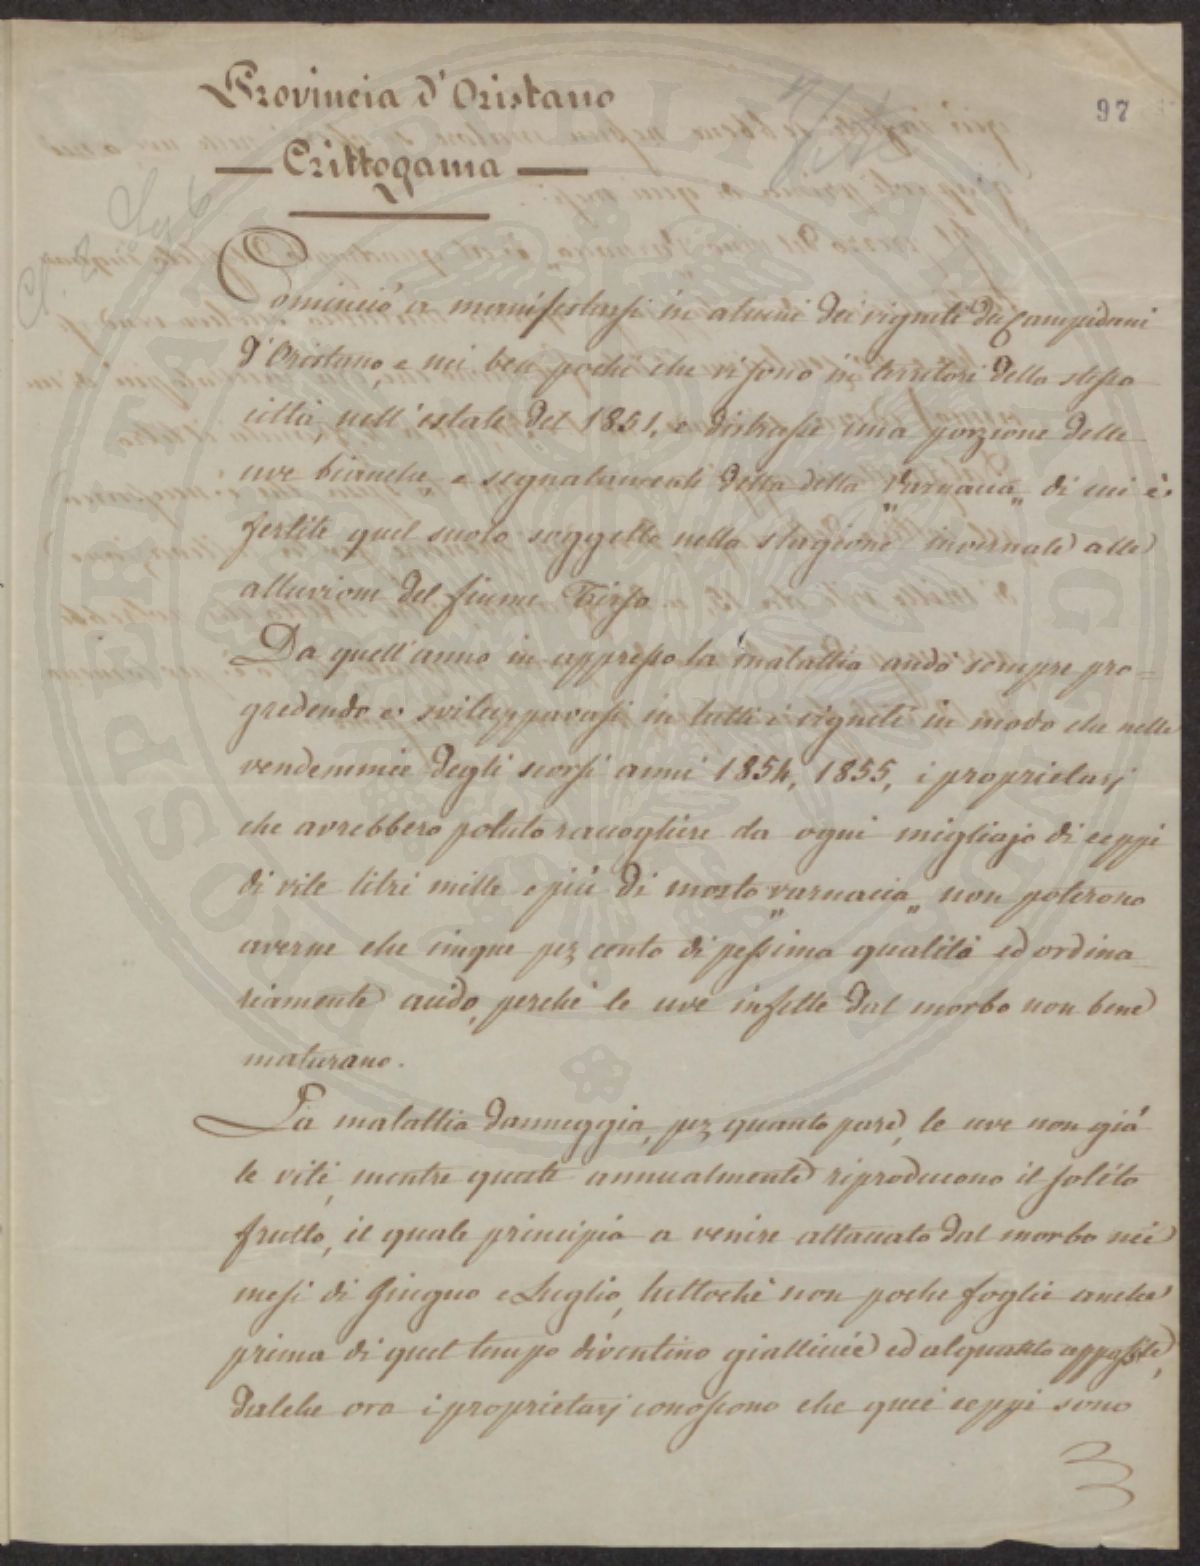 Provincia d'Oristano
97
— Crittogama —
Cominciò a manifestarsi in alcuni dei vigneti dei Campidani
d'Oristano, e nei ben pochi che vi sono in territori della stessa
città nell'estate del 1851, e distrusse una porzione delle
uve bianche e segnatamente della detta „Varnacia„ di cui è
fertile quel suolo soggetto nella stagione invernale alle
alluvioni del fiume Tirso
Da quell'anno in appresso la malattia andò sempre pro-
gredendo e sviluppavasi in tutti i vigneti in modo che nelle
vendemmie degli scorsi anni 1854, 1855, i proprietarj
che avrebbero potuto raccogliere da ogni migliajo di ceppi
di vite litri mille e più di mosto „varnacia„ non poterono
averne che cinque per cento di pessima qualità ed ordina-
riamente acido, perchè le uve infette dal morbo non bene
maturano.
La malattia danneggia, per quanto pare, le uve non già
le viti, mentre queste annualmente riproducono il solito
frutto, il quale principia a venire attaccato dal morbo nei
mesi di Giugno e Luglio, tuttochè non poche foglie anche
prima di quel tempo diventino gialliccie ed alquanto appassite,
dalche ora i proprietarj conoscono che quei ceppi sono